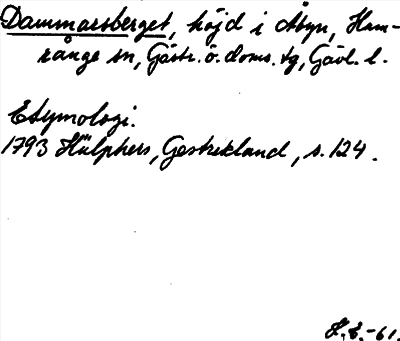 Dammarsberget, höjd i Åbyn, Ham-
rånge sn, Gästr. ö. doms. tg, Gävl. l.
Etymologi.
1793 Hülphers, Gestrikland, s. 124.
H.E.-61.